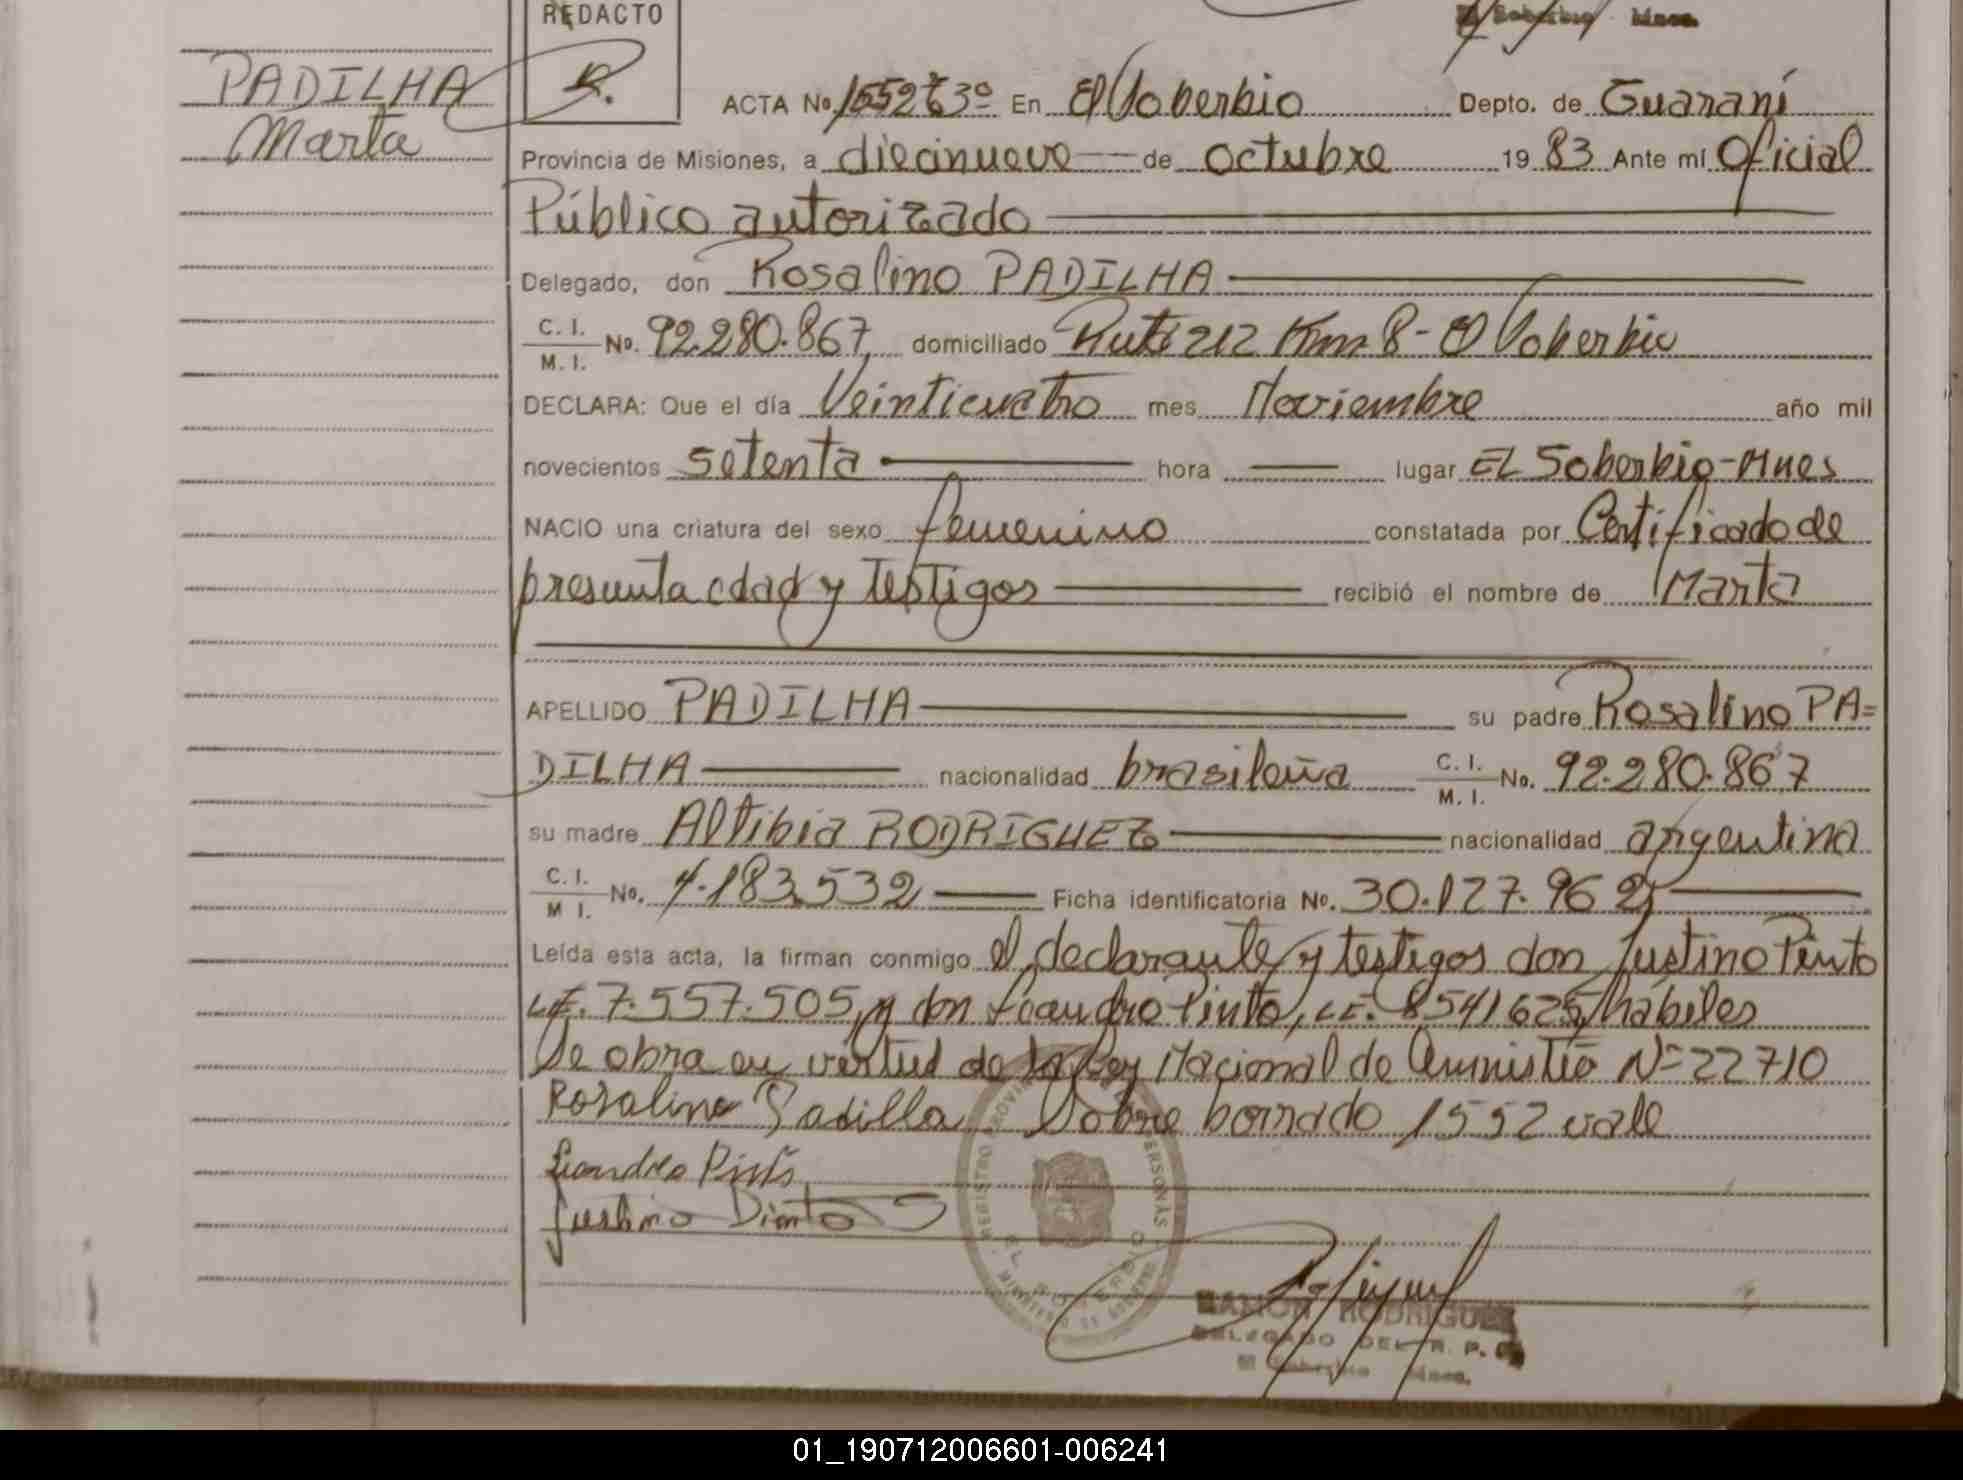 REDACTO
El Soberbio Mnes.
PADILHA
Marta
ACTA No. 1552 t 3º En El Soberbio Depto. de Guaraní
Provincia de Misiones, a diecinueve de octubre 19 83 Ante mí Oficial
Público autorizado
Delegado, don Rosalino PADILHA
C. I.
M. I. No. 92.280.867, domiciliado Ruta 212 Km 8 - El Soberbio
DECLARA: Que el día Veinticuatro mes Noviembre año mil
novecientos setenta hora lugar EL Soberbio-Mnes
NACIO una criatura del sexo femenino constatada por Certificado de
presunta edad y testigos recibió el nombre de Marta
APELLIDO PADILHA su padre Rosalino PA=
DILHA nacionalidad brasileña C. I.
M. I. No. 92.280.867
su madre Altibia RODRIGUEZ nacionalidad argentina
C. I.
M I. No. 4.183.532 Ficha identificatoria No. 30.127.962,
Leída esta acta, la firman conmigo el declarante y testigos don Justino Pinto
LE. 7.557.505, y don Leandro Pinto, LE. 8541625, hábiles
Se obra en virtud de la Ley Nacional de Amnistía Nº 22710
Rosalino Padilla Sobre borrado 1552 vale
Leandro Pinto
Justino Pinto
REGISTRO PERSONAS
EL SOBERBIO
MINISTERIO DE GOBIERNO
RAMON RODRIGUEZ
DELEGADO DEL R. P.
El Soberbio Mnes.
01_190712006601-006241